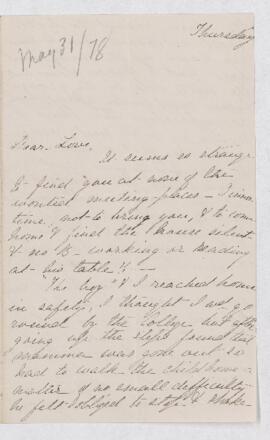 Thursday
May 31/78
Dear Love,
It seems so strange
to find you at none of the
wonted meeting-places — Dinner
time, not to bring you, & to come
home & find the house silent
& no B — working or reading
at his table!! —
The boy & I reached home
in safety, I thought I'd go
round by the College but after
going up the steps found that
was gone out so
had to walk the child home — a
matter of no small difficulty
he felt obliged to stop & shake